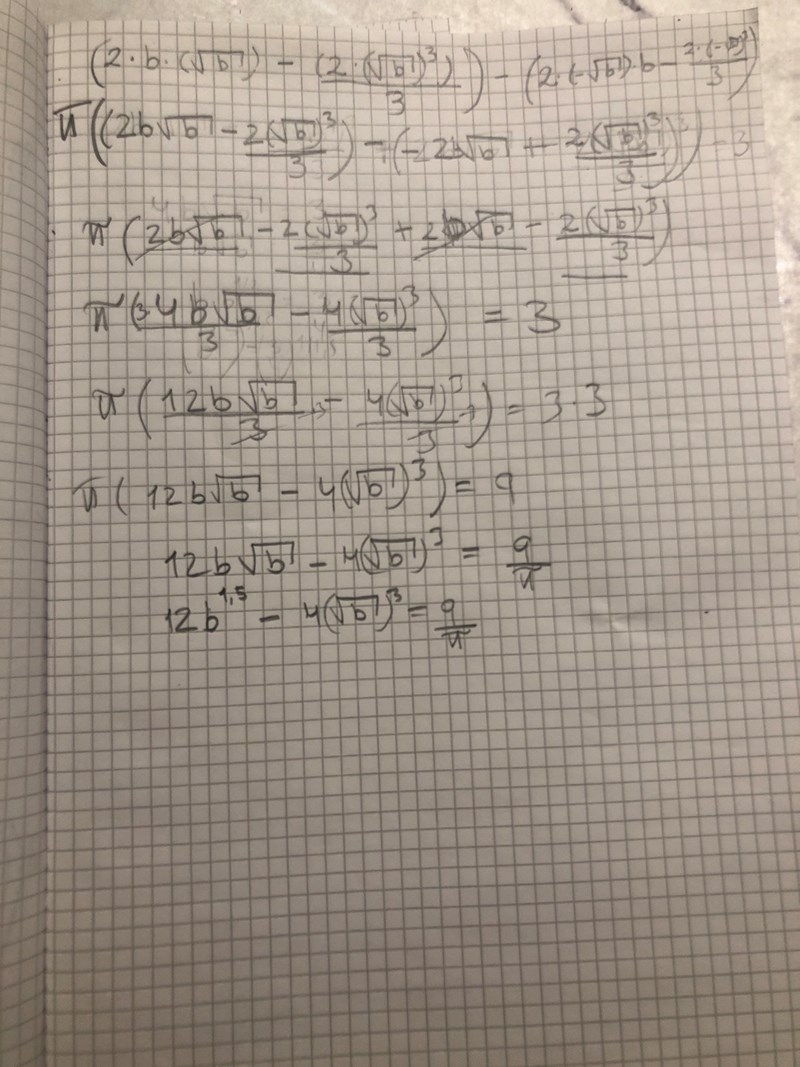 (2·b·(√b) - (2·(√b)³)/3) - (2·(-√b)·b - 2·(-√b)³/3)
π((2b√b - 2(√b)³/3) - (-2b√b + 2(√b)³/3)) = 3
π(2b√b - 2(√b)³/3 + 2b√b - 2(√b)³/3)
π(3·4b√b/3 - 4(√b)³/3) = 3
π(12b√b/3 - 4(√b)³/3) = 3·3
π(12b√b - 4(√b)³) = 9
12b√b - 4(√b)³ = 9/π
12b^1,5 - 4(√b)³ = 9/π